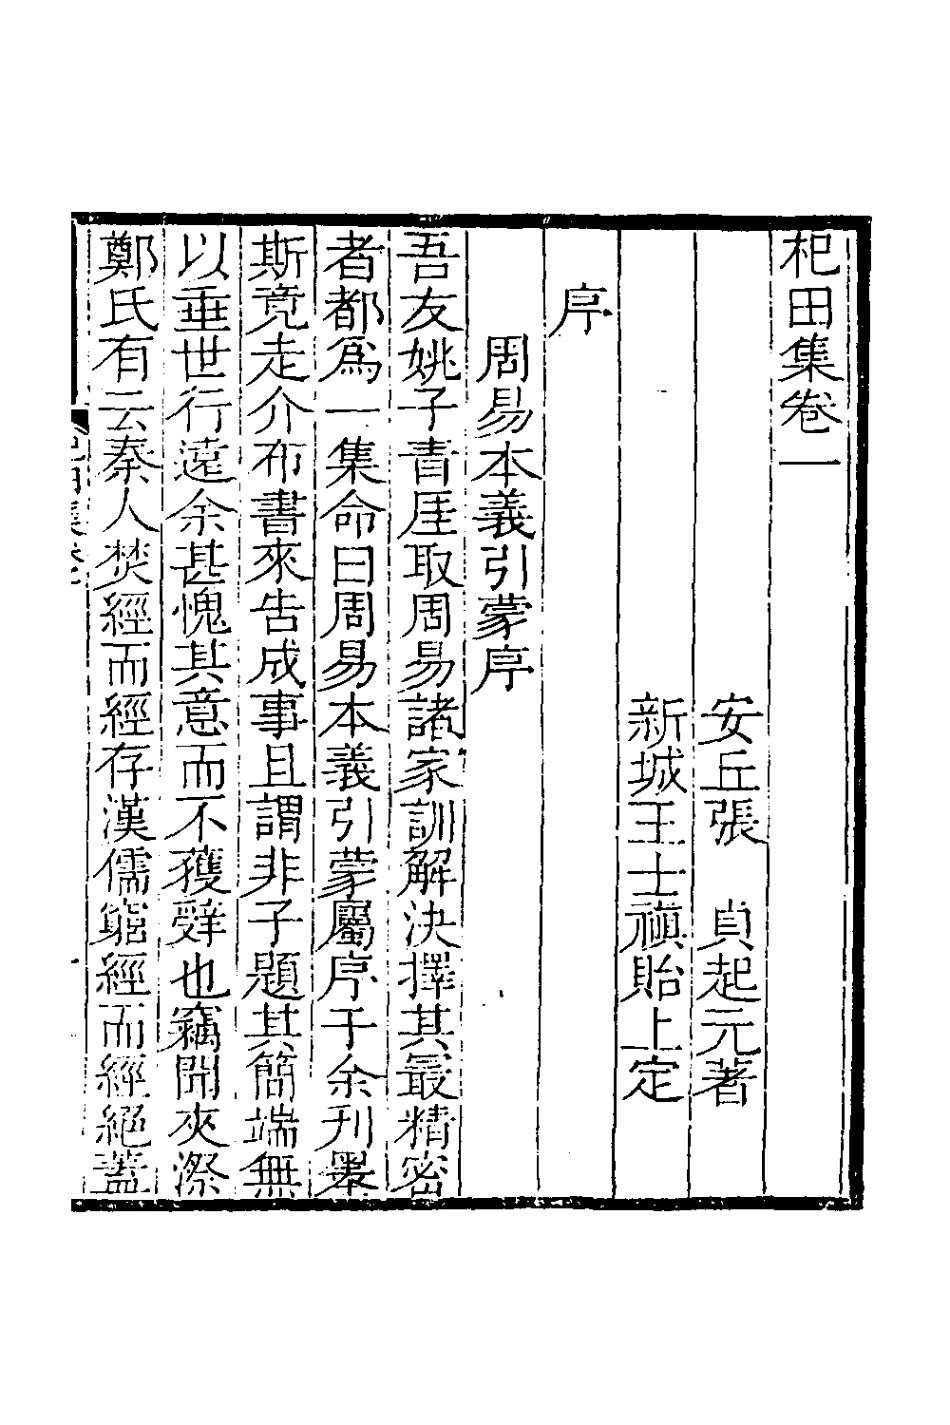 杞田集卷一
安丘張　貞起元著
新城王士禛貽上定
序
周易本義引蒙序
吾友姚子青厓取周易諸家訓解決擇其最精密
者都爲一集命曰周易本義引蒙屬序于余刊畢
斯竟走介布書來告成事且謂非子題其簡端無
以垂世行遠余甚愧其意而不獲辤也竊聞夾漈
鄭氏有云秦人焚經而經存漢儒窮經而經絕蓋
杞田集卷一
一